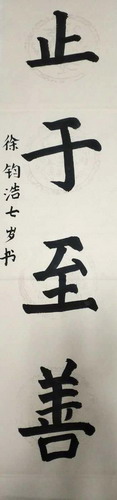 止于至善
徐钧浩七岁书